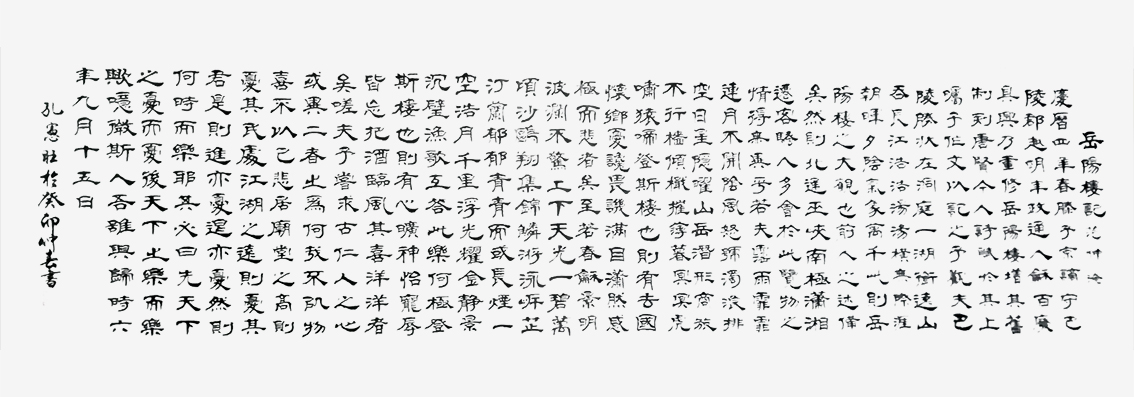 岳陽樓記范仲淹
慶曆四年春滕子京謫守巴
陵郡越明年政通人龢百廢
具興乃重修岳陽樓增其舊
制刻唐賢今人詩賦於其上
囑予作文以記之予觀夫巴
陵勝狀在洞庭一湖銜遠山
吞長江浩浩湯湯橫無際涯
朝暉夕陰氣象萬千此則岳
陽樓之大觀也前人之述備
矣然則北通巫峽南極瀟湘
遷客騷人多會於此覽物之
情得無異乎若夫霪雨霏霏
連月不開陰風怒號濁浪排
空日星隱曜山岳潛形商旅
不行檣傾楫摧薄暮冥冥虎
嘯猿啼登斯樓也則有去國
懷鄉憂讒畏譏滿目蕭然感
極而悲者矣至若春龢景明
波瀾不驚上下天光一碧萬
頃沙鷗翔集錦鱗游泳岸芷
汀蘭郁郁青青而或長煙一
空浩月千里浮光耀金靜景
沉璧漁歌互答此樂何極登
斯樓也則有心曠神怡寵辱
皆忘把酒臨風其喜洋洋者
矣嗟夫予嘗求古仁人之心
或異二者之為何哉不以物
喜不以己悲居廟堂之高則
憂其民處江湖之遠則憂其
君是則進亦憂退亦憂然則
何時而樂耶其必曰先天下
之憂而憂後天下之樂而樂
歟噫微斯人吾誰與歸時六
年九月十五日
孔憲壯於癸卯仲春書